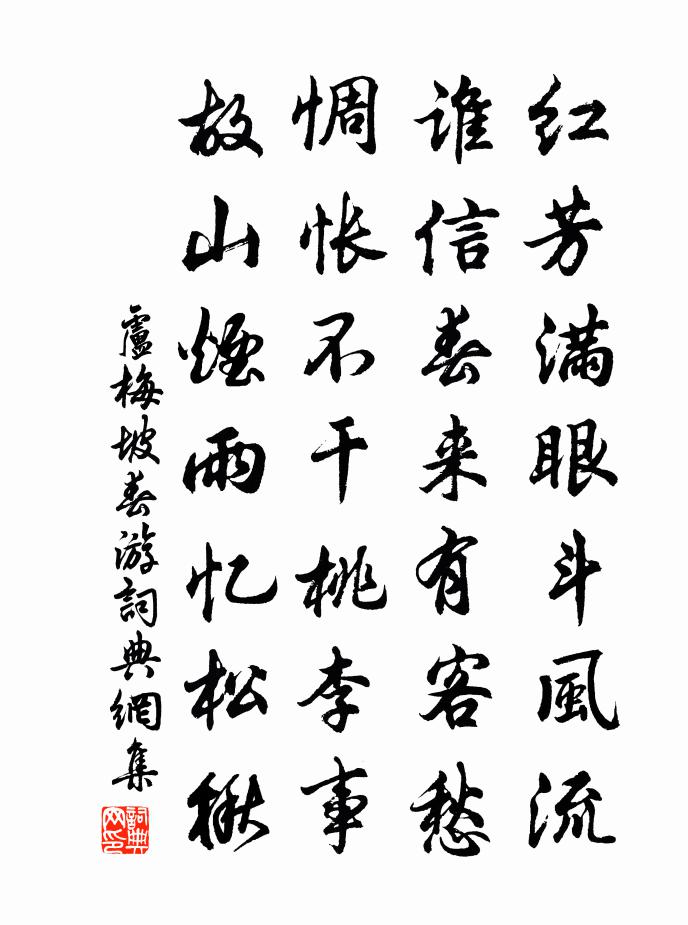 红芳满眼斗風流
谁信春来有客愁
惆怅不干桃李事
故山煙雨忆松楸
盧梅坡春游詞典網集
詞典网印